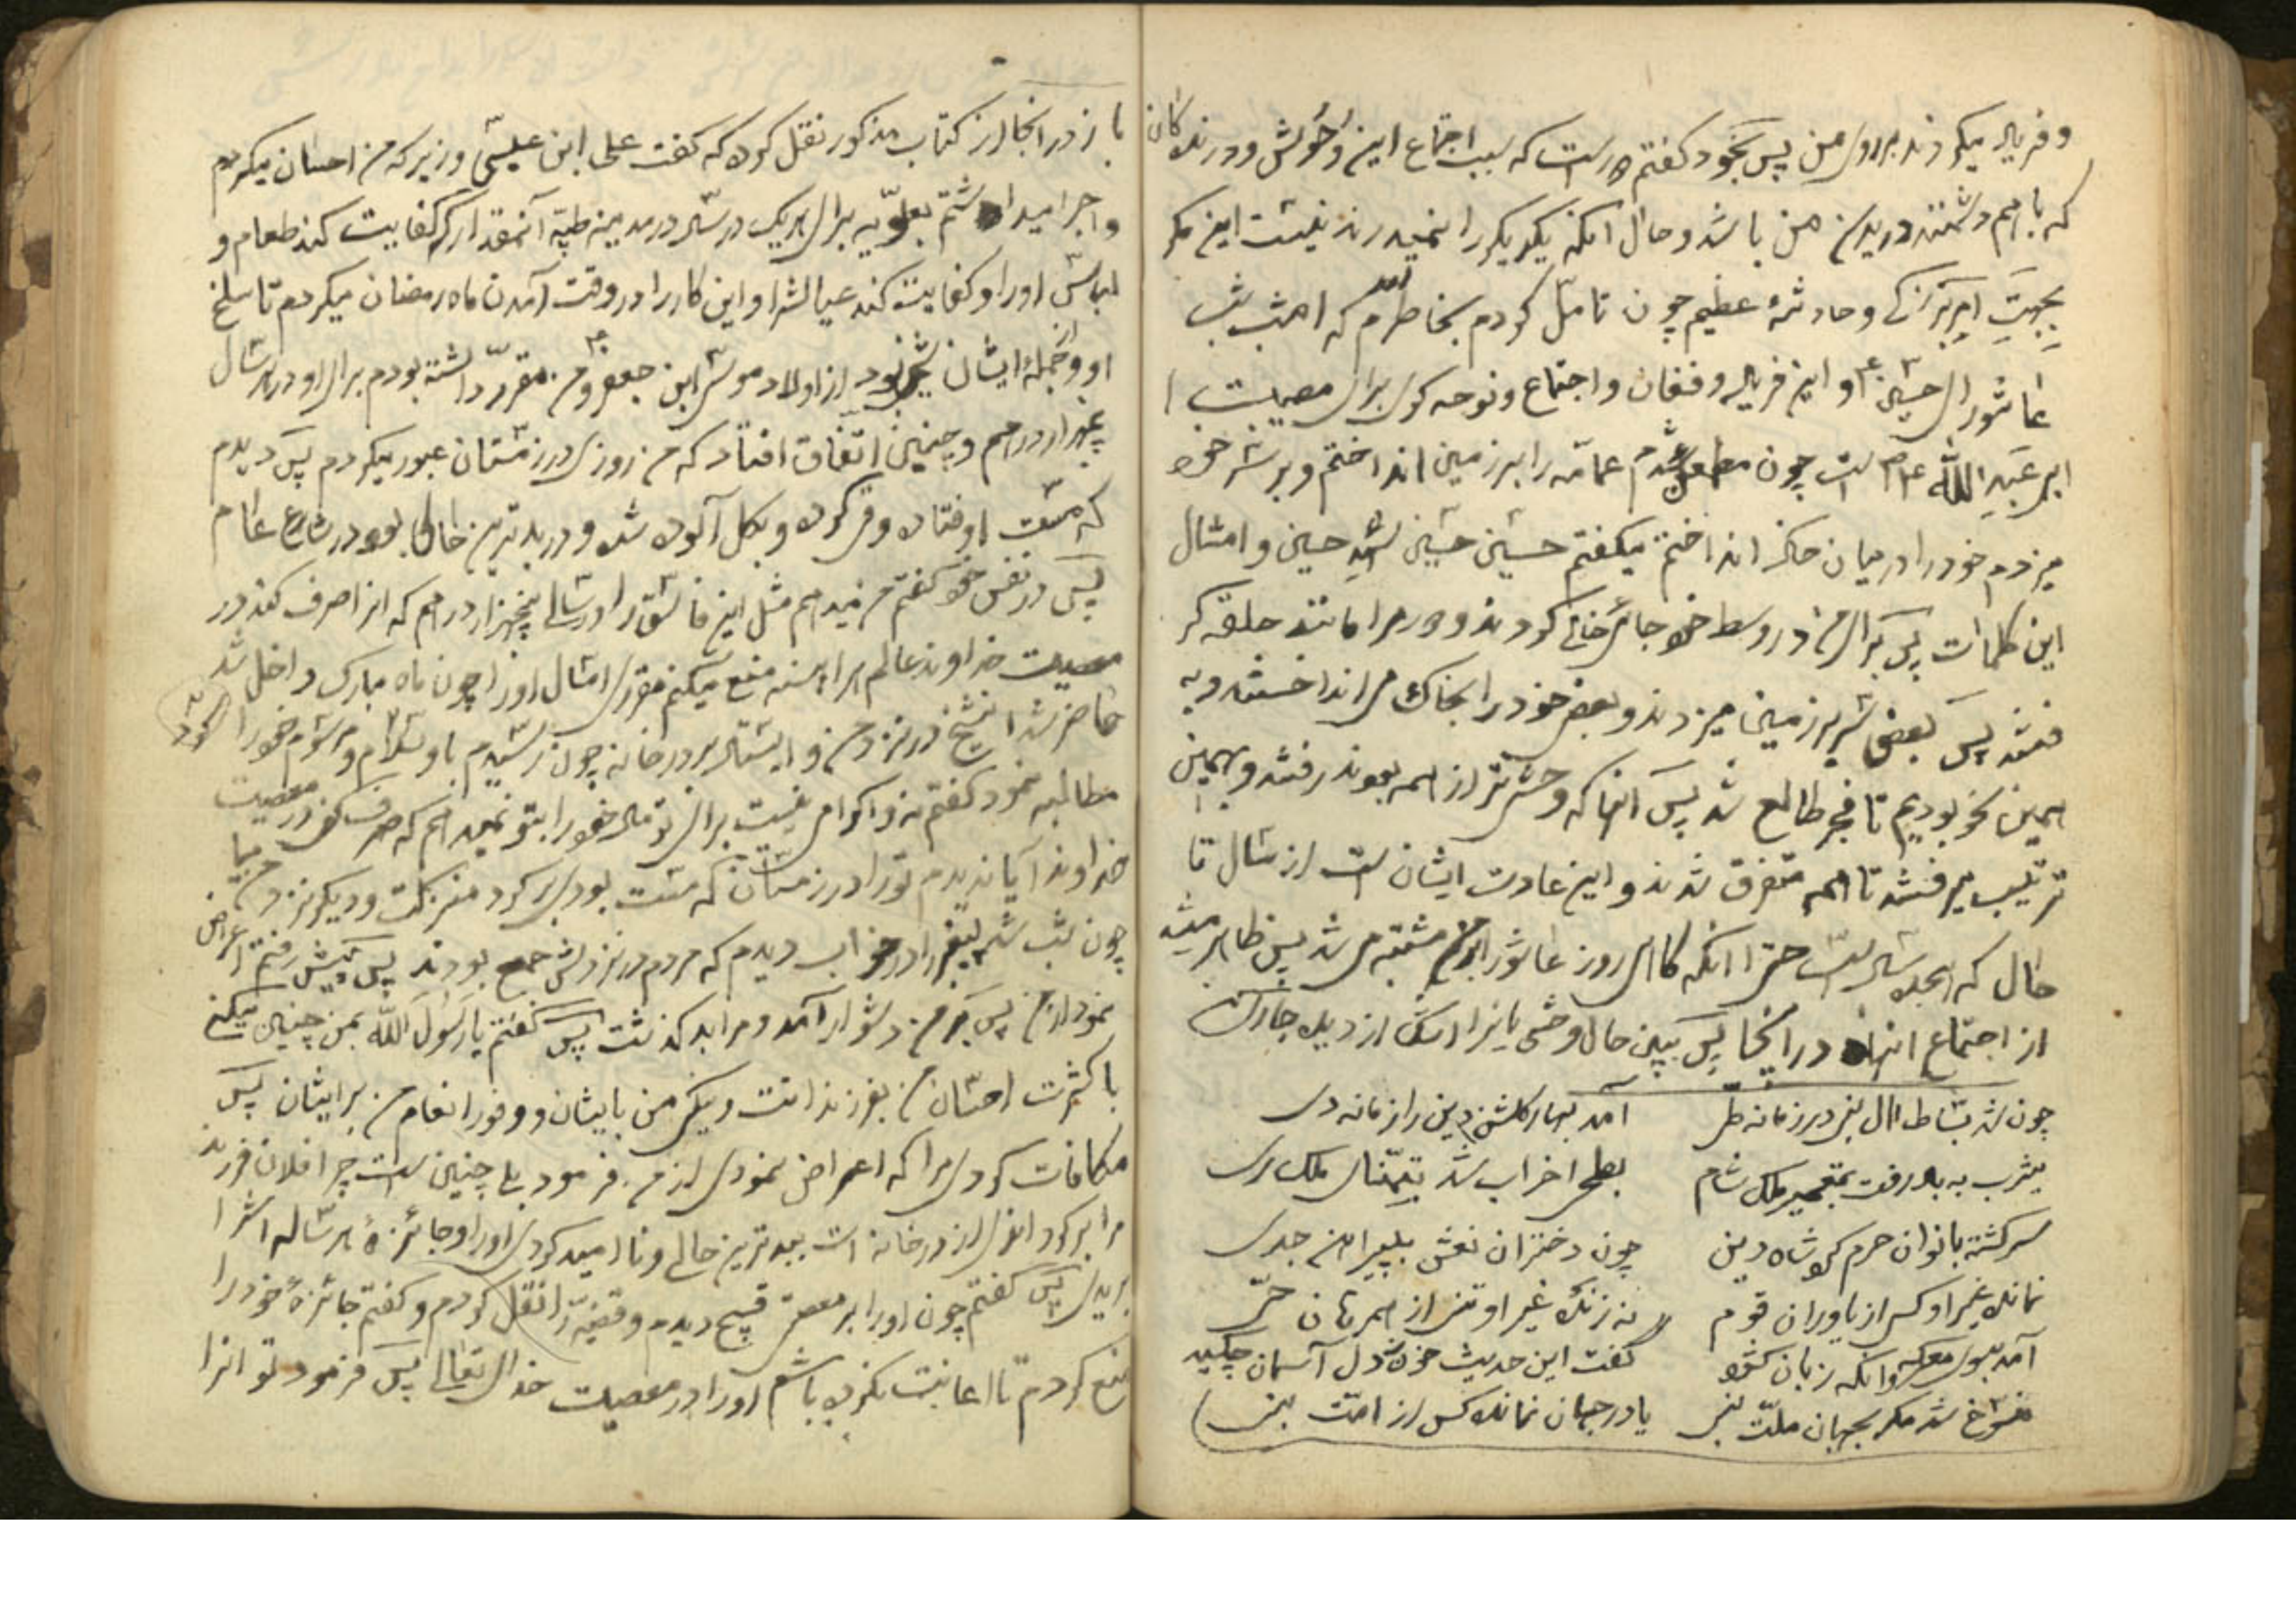 و فریاد میکردند بر روی من پس بخود گفتم درست که سبب اجتماع این وحوش و درندکان
که با هم دشمنند دریدن من باشد و حال آنکه یکدیکر را نمیدرند نیست این مکر
بجهت امر بزرکی و حادثهٔ عظیم چون تامّل کردم بخاطرم آمد که امشب شب
عاشورای حسین ع و این فریاد و فغان و اجتماع و نوحه کری برای مصیبت
ابی عبد الله ع است چون مطمئن شدم عمامه را بر زمین انداختم و بر سر خود
میزدم خود را در میان خاک انداختم میگفتم حسین حسین شهید حسین و امثال
این کلمات پس برای من در وسط خود جائی خالی کردند و دور مرا مانند حلقه کر
فتند پس بعضی سر بر زمین میزدند و بعضی خود را بخاک می انداختند و به
همین نحو بودیم تا فجر طالع شد پس آنها که وحشی تر از همه بودند رفتند و بهمین
ترتیب میرفتند تا همه متفرق شدند و این عادت ایشان است از آن سال تا
حال که هجده سال است حتی آنکه کاهی روز عاشورا بر من مشتبه می شد پس ظاهر میشد
از اجتماع آنها در اینجا پس ببین حال وحشی یانرا اشک از دیده جاری کن
چون شد بساط آل نبی در زمانه طی آمد بهار گلشن دین را زمانه دی
یثرب به باد رفت بتعمیر ملک شام بطحا خراب شد بتمنّای ملک ری
سرکشته بانوان حرم کرد شاه دین چون دختران نعش به پیرامن جدی
نمانده غیر او کسی از یاوران قوم نه زنده غیر او تنی از همرهان حی
آمد بسوی معرکه وانکه زبان کشود گفت این حدیث خون دل آسمان چکید
منسوخ شد مکر بجهان ملت نبی یا در جهان نمانده کس از امت نبی
باز در انجا از کتاب مذکور نقل کرده که گفت علی ابن عیسی وزیر که من احسان میکردم
و اجرا میداشتم بعلویه برای هریک در سال در مدینه طیبه آنمقدار که کفایت کند طعام و
لباس او را و کفایت کند عیالش را و این کار را در وقت آمدن ماه رمضان میکردم تا سلخ
او و از جملهٔ ایشان شیخی بود از اولاد موسی ابن جعفر ع و من مقرر داشته بودم برای او در هر سال
پنجهزار درهم و چنین اتفاق افتاد که من روزی در زمستان عبور میکردم پس دیدم
که مست افتاده و قی کرده و بکل آلوده شده و در بدترین حالی بود در شارع عام
پس در نفس خود گفتم من میدهم مثل این فاسق را در سالی پنجهزار درهم که انرا صرف کند در
معصیت خداوند عالم هر اینه منع میکنم مقرری امثال او را چون ماه مبارک داخل شد
حاضر شد آن شیخ در نزد من و ایستاد بر در خانه چون رسیدم باو سلام و مرسوم خود را
مطالبه نمود گفتم نه و اکرامی نیست برای تو مال خود را بتو نمیدهم که صرف کنی در معصیت
خداوند آیا ندیدم تو را در زمستان که مست بودی برکرد منزلت و دیکر نزد من میا
چون شب شد پیغمبر را در خواب دیدم که مردم در نزدش جمع بودند پس پیش رفتم اعراض
نمود از من پس بر من دشوار آمد و مرا بد گذشت پس گفتم یا رسول الله بمن چنین میکنی
با کثرت احسان من بفرزندانت و نیکی من بایشان و وفور انعام من بر ایشان پس
مکافات کردی مرا که اعراض نمودی از من فرمود بلی چنین است چرا فلان فرزند
مرا برکردانیدی از در خانه ات ببدترین حالی و ناامید کردی او را و جائزهٔ هر ساله اش را
بریدی پس گفتم چون او را بر معصیتی قبیح دیدم و قضیه را نقل کردم و گفتم جائزهٔ خود را
منع کردم تا اعانت نکرده باشم او را در معصیت خدای تعالی پس فرمود تو انرا